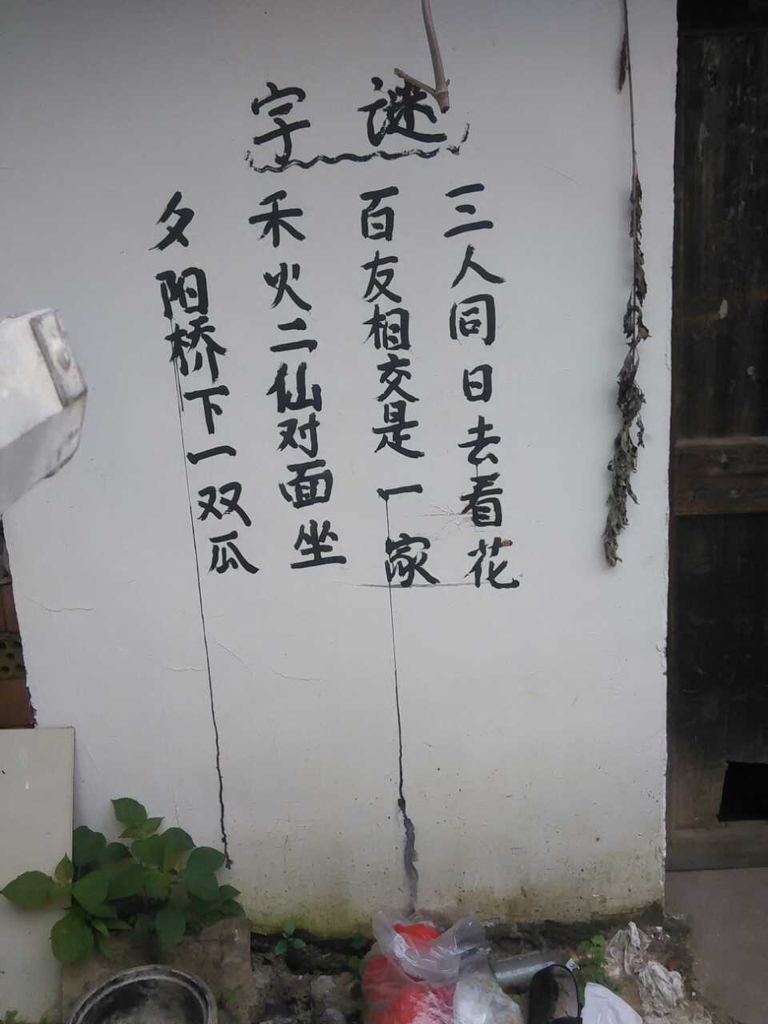 字谜
三人同日去看花
百友相交是一家
禾火二仙对面坐
夕阳桥下一双瓜